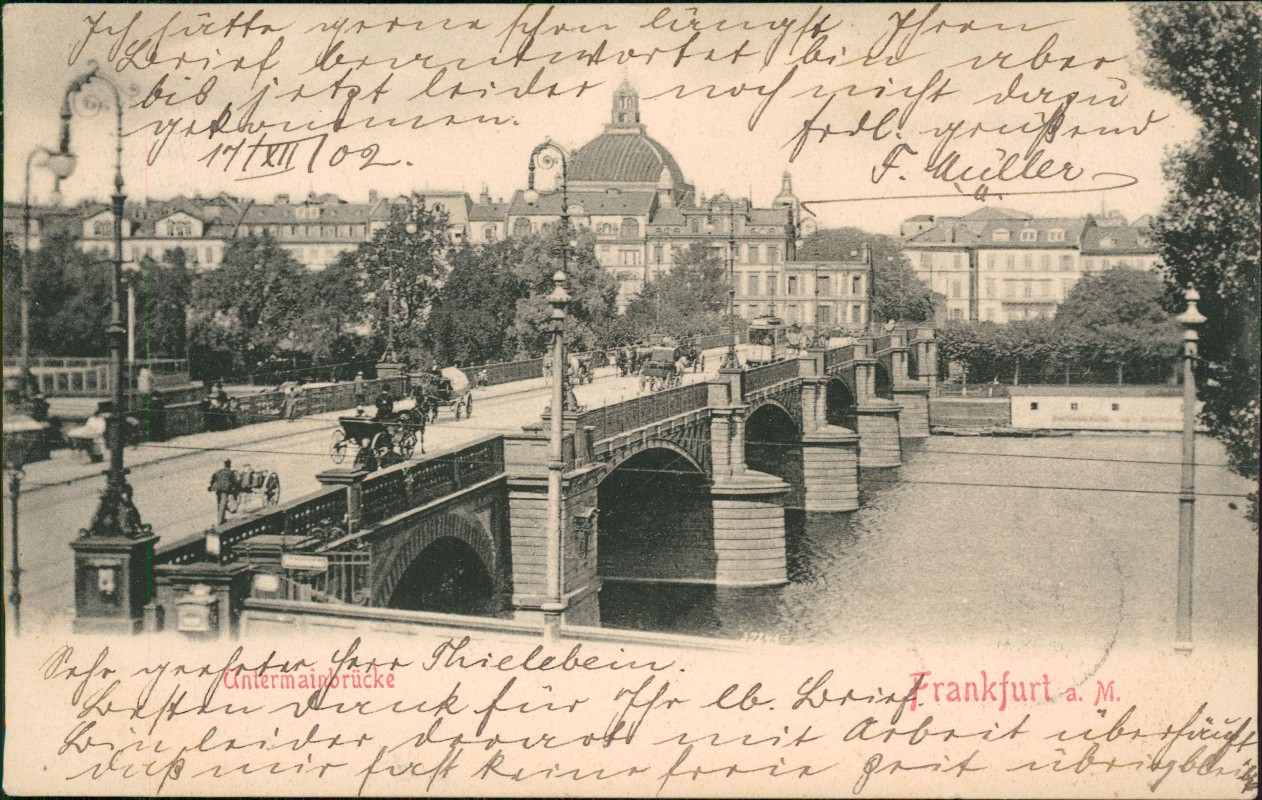 Ich hätte gerne schon längst Ihren
Brief beantwortet bin aber
bis jetzt leider noch nicht dazu
gekommen. frdl. grüßend
17/XII/02. F. Müller
Sehr geehrter Herr Thielebein.
Untermainbrücke Frankfurt a. M.
Besten Dank für Ihr lb. Brief.
Bin leider derart mit Arbeit überhäuft
daß mir fast keine freie Zeit übrigbleibt